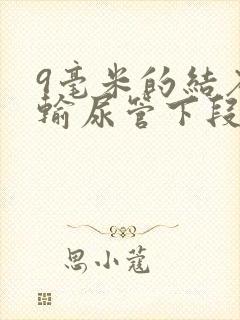 9毫米的結
輸尿管下段
思小蔻